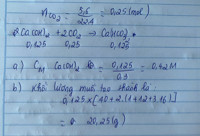 nCO2 = 5,6 / 22,4 = 0,25 (mol)
Ca(OH)2 + 2CO2 → Ca(HCO3)2
0,125 0,25 0,125
a) CM Ca(OH)2 = 0,125 / 0,3 = 0,42M
b) Khối lượng muối tạo thành là:
0,125 × [40 + 2.(1+12+3.16)]
= 20,25 (g)